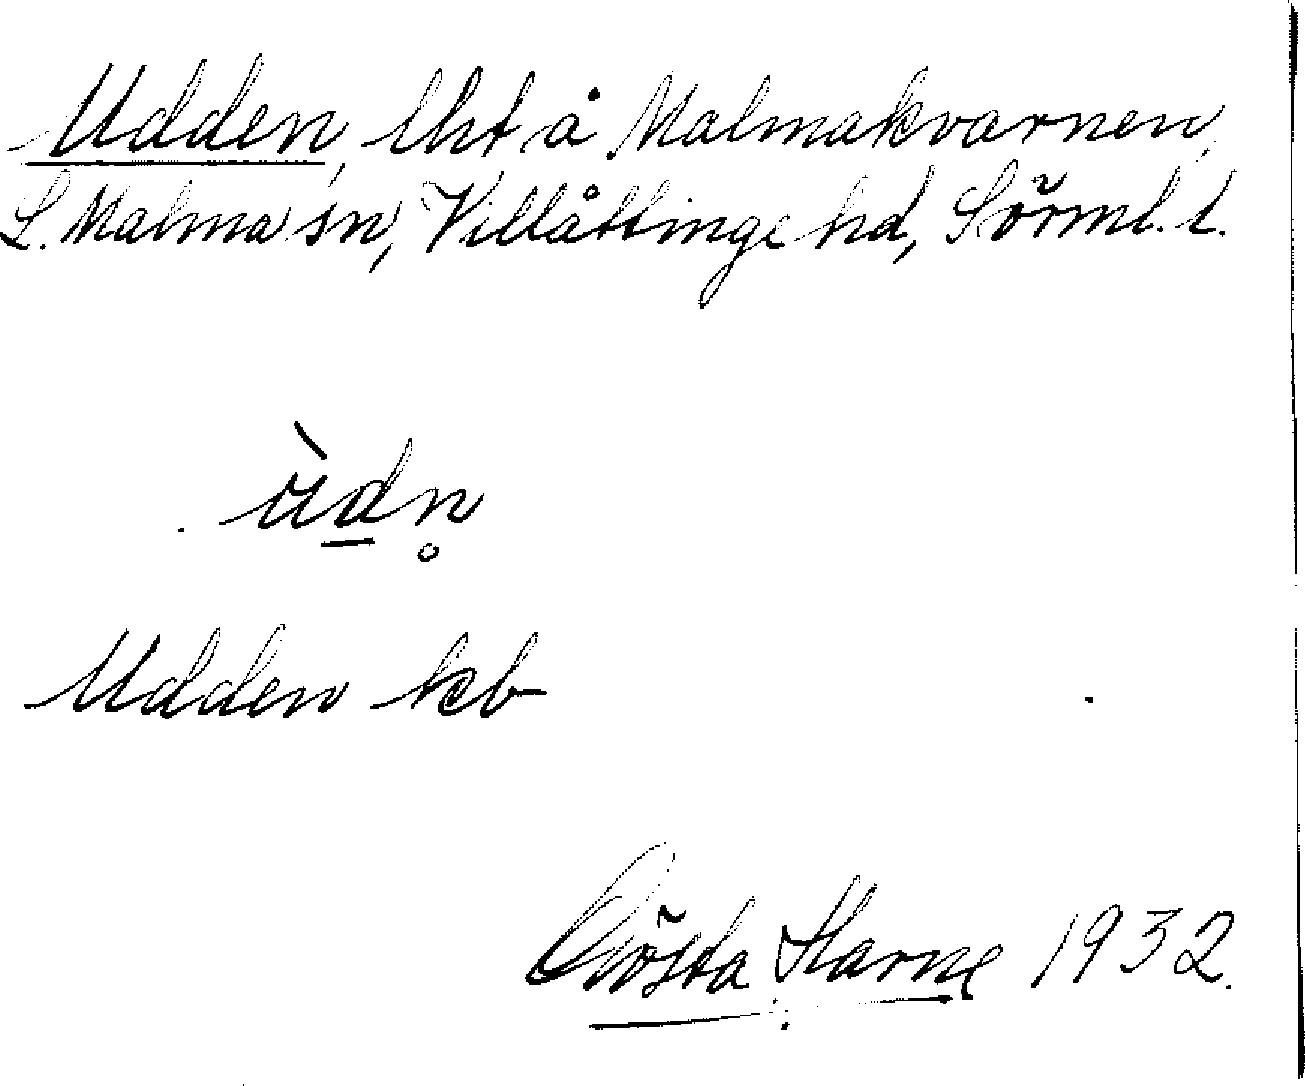 Udden, lht å Malmakvarnen,
L. Malma sn, Villåttinge hd, Sörml. l.
ùdn̥
Udden kb
Gösta Harne 1932.